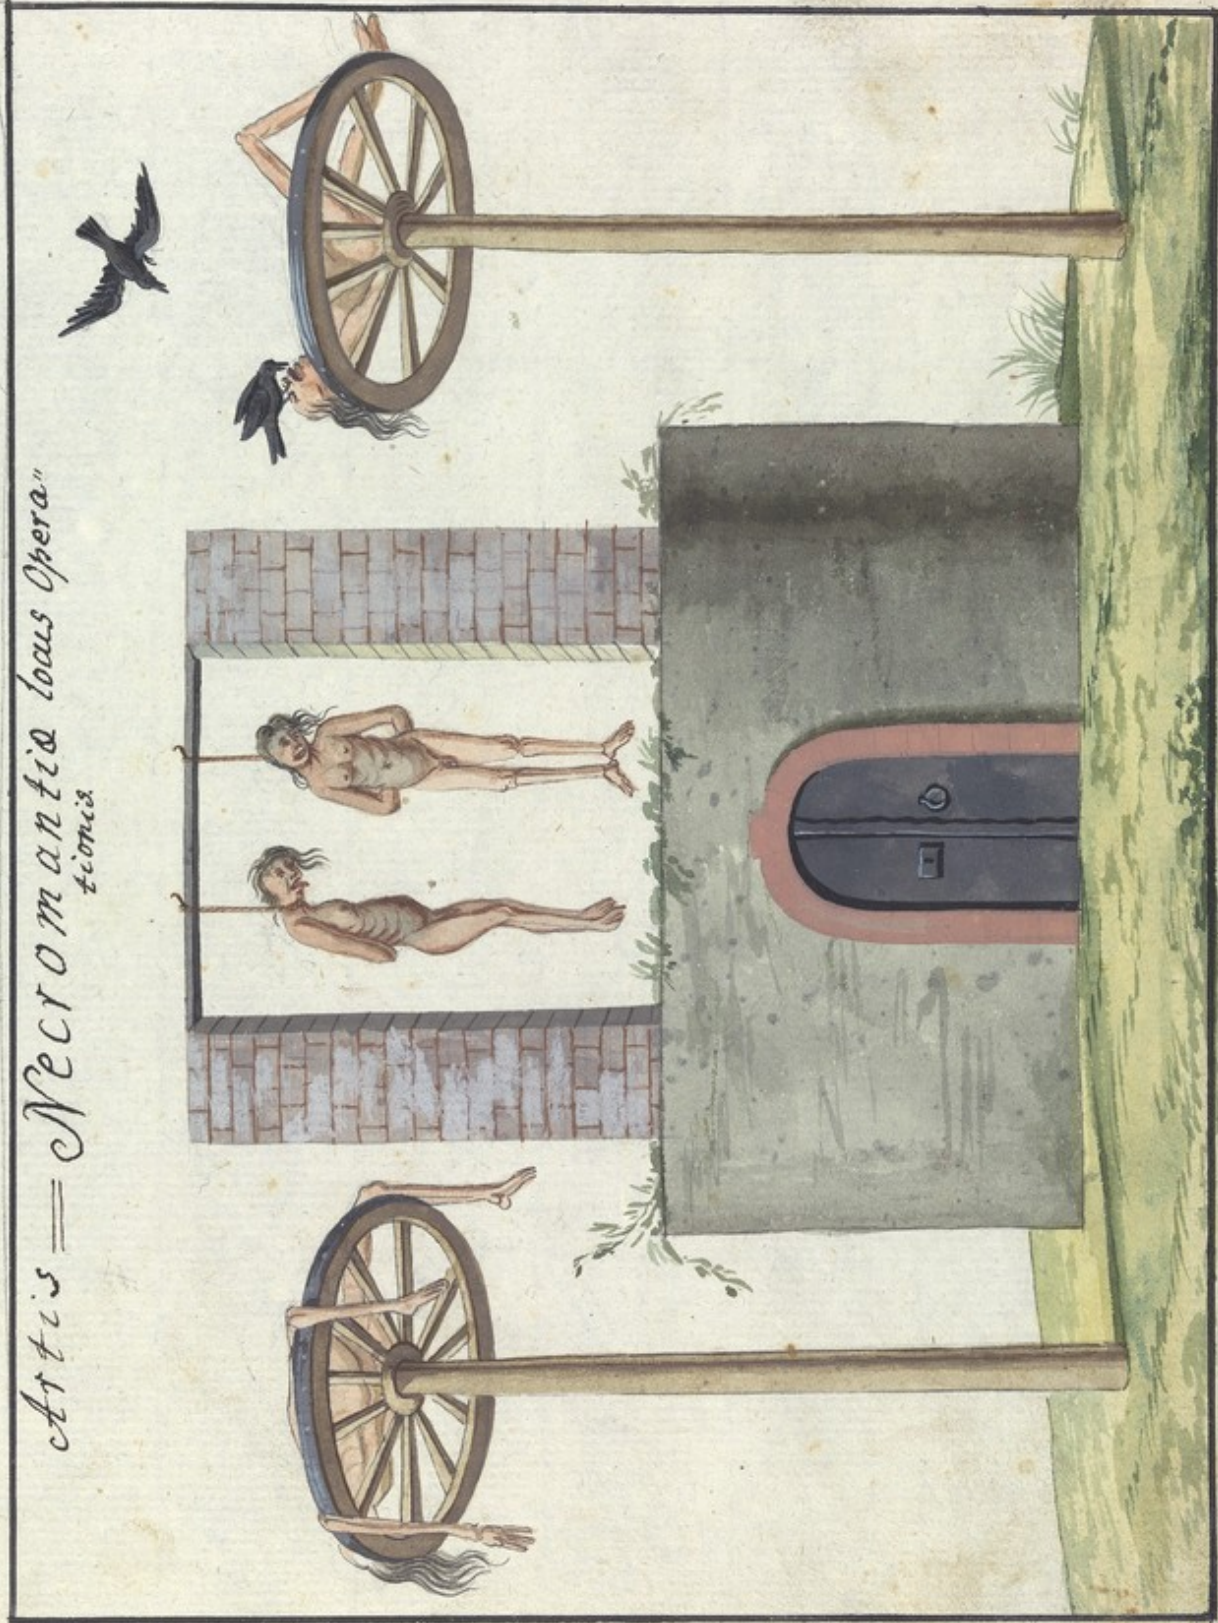 Artis = Necromantiæ locus Opera"
tionis.